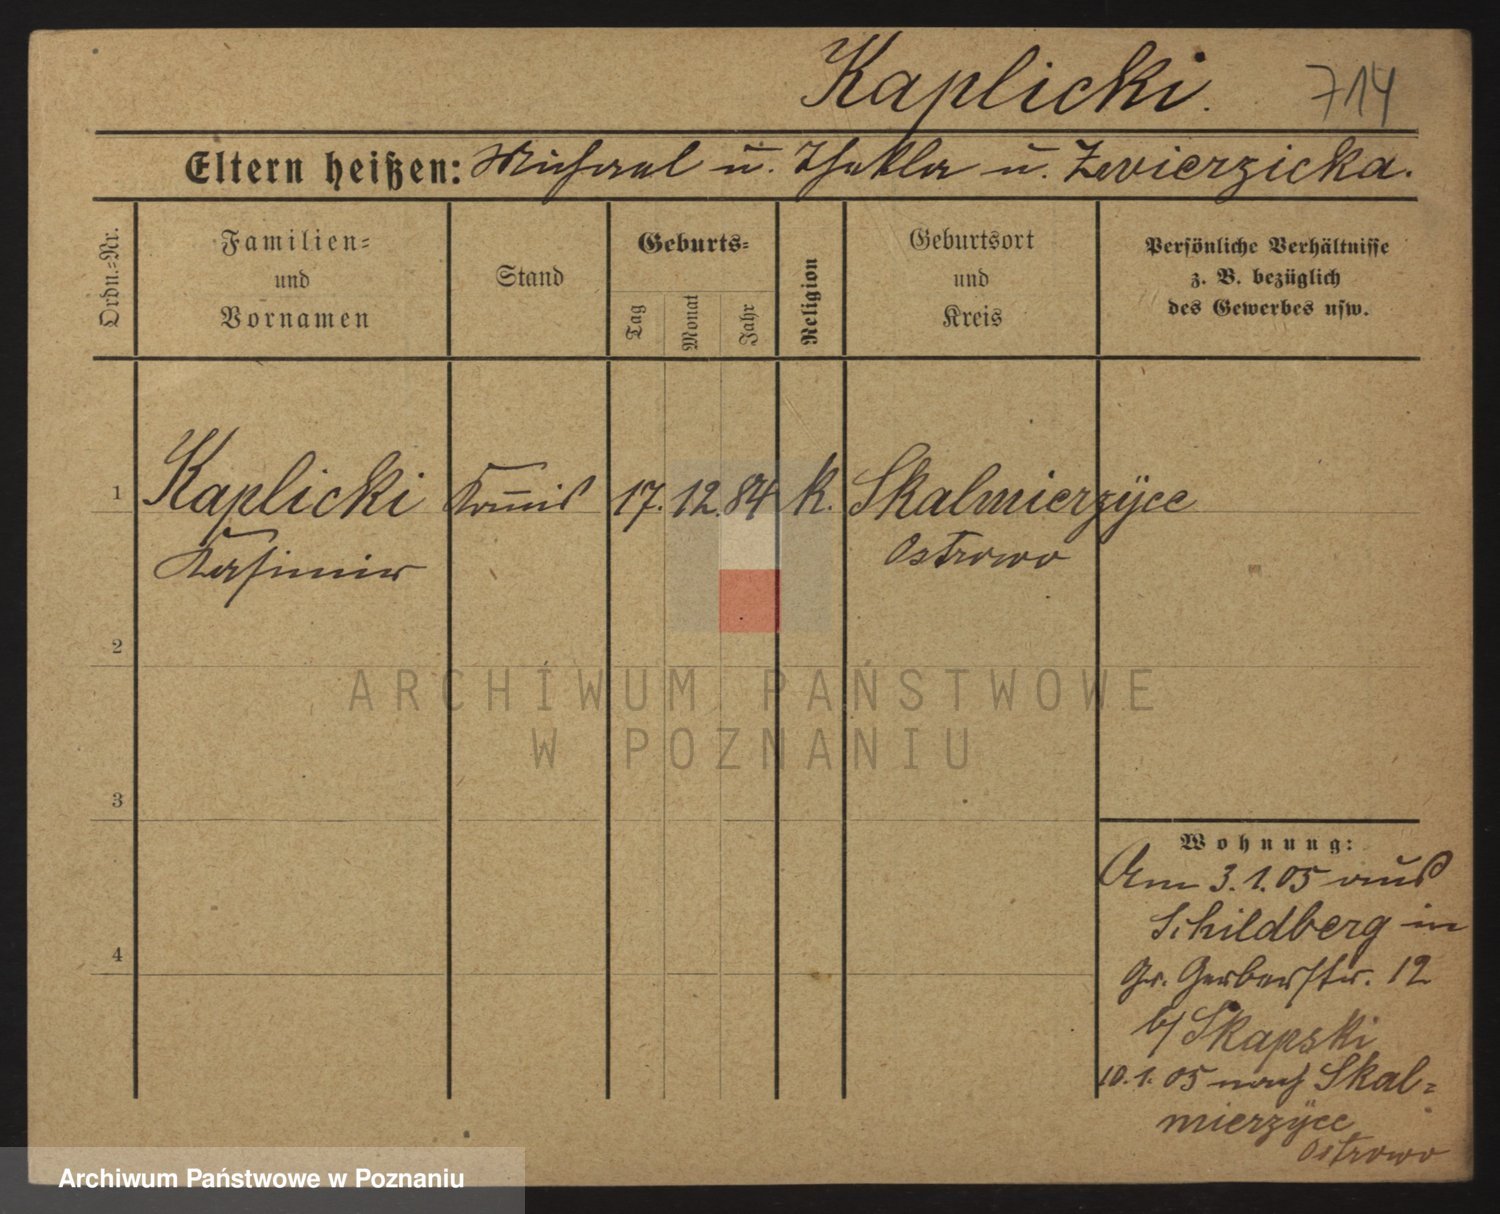 Kaplicki. 714
Eltern heißen: Michael u. Thekla u. Zwierzicka.
Ordn.=Nr.
Familien=
und
Vornamen
Stand
Geburts=
Tag
Monat
Jahr
Religion
Geburtsort
und
Kreis
Persönliche Verhältnisse
z. B. bezüglich
des Gewerbes usw.
1 Kaplicki Kommis 17. 12. 84 k. Skalmierzÿce
Kasimir Ostrowo
2
ARCHIWUM PAŃSTWOWE
W POZNANIU
3
Wohnung:
Am 3.1.05 aus
Schildberg in
4
Gr. Gerberstr. 12
b/ Skapski
10.1.05 nach Skal=
mierzÿce
Ostrowo
Archiwum Państwowe w Poznaniu